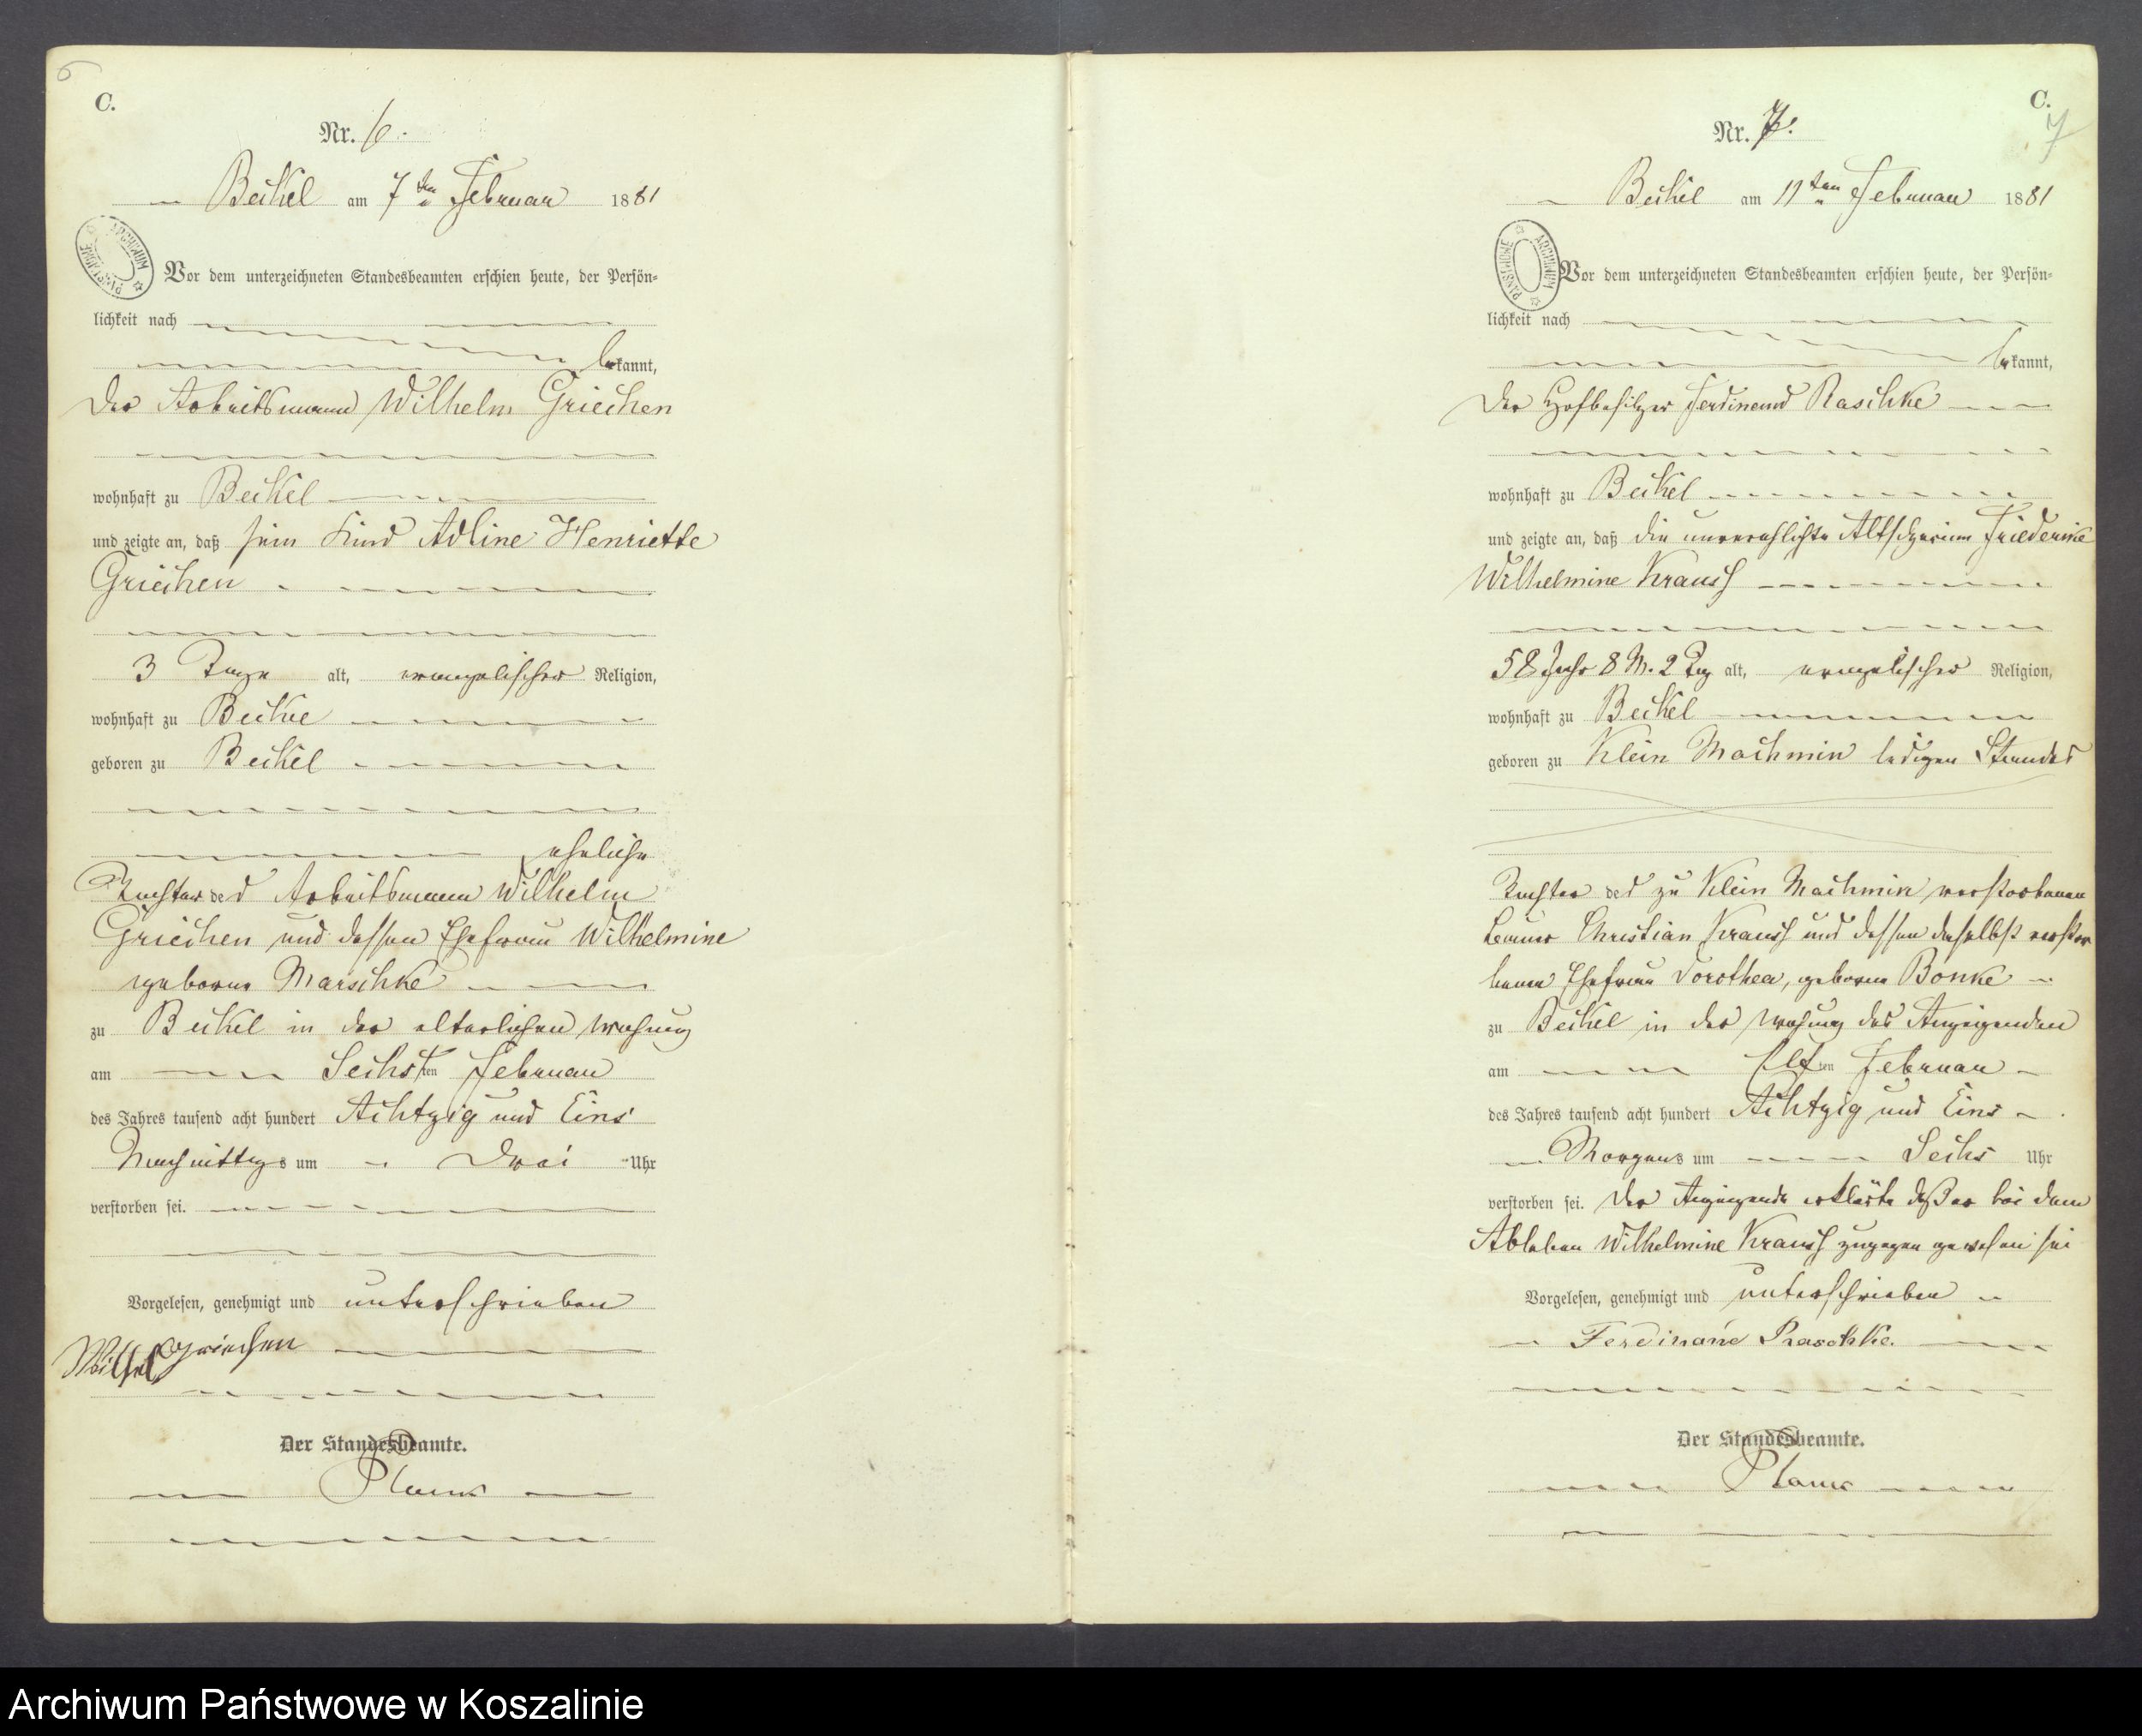 6
C.
Nr. 6.
Beckel am 7ten Februar 1881
PAŃSTWOWE ARCHIWUM
Vor dem unterzeichneten Standesbeamten erschien heute, der Persön-
lichkeit nach
bekannt,
der Arbeitsmann Wilhelm Griechen
wohnhaft zu Beckel
und zeigte an, daß sein Kind Adline Henriette
Griechen
3 Tage alt, evangelischer Religion,
wohnhaft zu Becke
geboren zu Beckel
eheliche
Tochter des Arbeitsmann Wilhelm
Griechen und dessen Ehefrau Wilhelmine
geborne Marschke
zu Beckel in der elterlichen Wohnung
am Sechsten Februar
des Jahres tausend acht hundert Achtzig und Eins
Nachmittags um Drei Uhr
verstorben sei.
Vorgelesen, genehmigt und unterschrieben
Wilhel Griechen
Der Standesbeamte.
C.
7
Nr. 7.
Beckel am 11ten Februar 1881
PAŃSTWOWE ARCHIWUM
Vor dem unterzeichneten Standesbeamten erschien heute, der Persön-
lichkeit nach
bekannt,
Der Hofbesitzer Ferdinand Raschke
wohnhaft zu Beckel
und zeigte an, daß die unverehlichte Friederike
Wilhelmine Krauss
58 Jahr 8 M. 2 Tag alt, evangelischer Religion,
wohnhaft zu Beckel
geboren zu Klein Machmin ledigen Standes
Tochter des zu Klein Machmin verstorbenen
Bauer Christian Krauss und dessen daselbst verstor
benen Ehefrau Dorothea, geborne Bonke
zu Beckel in der Wohnung des Anzeigenden
am Elften Februar
des Jahres tausend acht hundert Achtzig und Eins
Morgens um Sechs Uhr
verstorben sei. Der Anzeigende erklärte daß er bei dem
Ableben Wilhelmine Krauss zugegen gewesen sei
Vorgelesen, genehmigt und unterschrieben
Ferdinand Raschke.
Der Standesbeamte.
Archiwum Państwowe w Koszalinie